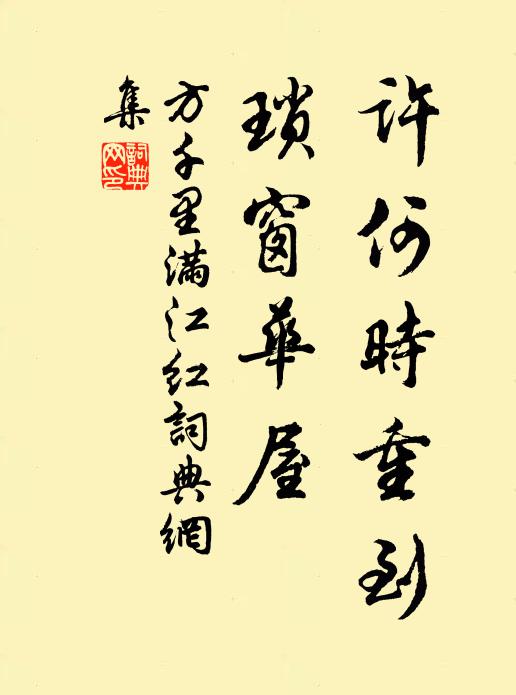 許何時重到
瑣窗華屋
方千里滿江紅詞典網
集
詞典
网印